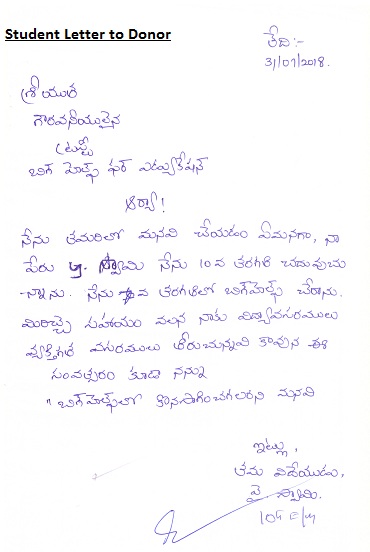 Student Letter to Donor
తేది:-
31/07/2018.
శ్రీయుత
గౌరవనీయులైన
ట్రస్టీ
బిగ్ హెల్ప్ ఫర్ ఎడ్యుకేషన్
ఆర్యా!
నేను తమరితో మనవి చేయడం ఏమనగా, నా
పేరు y. స్వామి నేను 10వ తరగతి చదువుచు
న్నాను. నేను వ తరగతిలో బిగ్‌హెల్ప్ చేరాను.
మీరిచ్చె సహాయం వలన నాకు విద్యావసరములు
వ్యక్తిగత వసరములు తీరుచున్నవి కావున ఈ
సంవత్సరం కూడా నన్ను
"బిగ్‌హెల్ప్‌లో కొనసాగించగలరని మనవి
ఇట్లు,
తమ విదేయుడు,
వై. స్వామి.
10th E/M